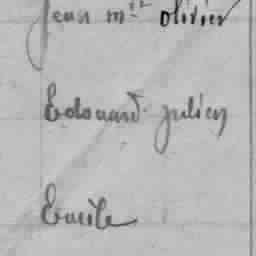 Jean m.ie olivier
Edouard julien
Emile